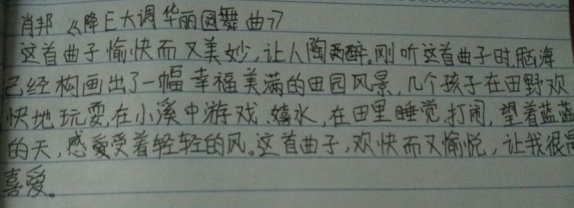 肖邦《降E大调华丽圆舞曲》
这首曲子愉快而又美妙,让人陶而醉。刚听这首曲子时,脑海
已经构画出了一幅幸福美满的田园风景,几个孩子在田野欢
快地玩耍,在小溪中游戏、嬉水,在田里睡觉,打闹,望着蓝蓝
的天,感爱受着轻轻的风。这首曲子,欢快而又愉悦,让我很是
喜爱。